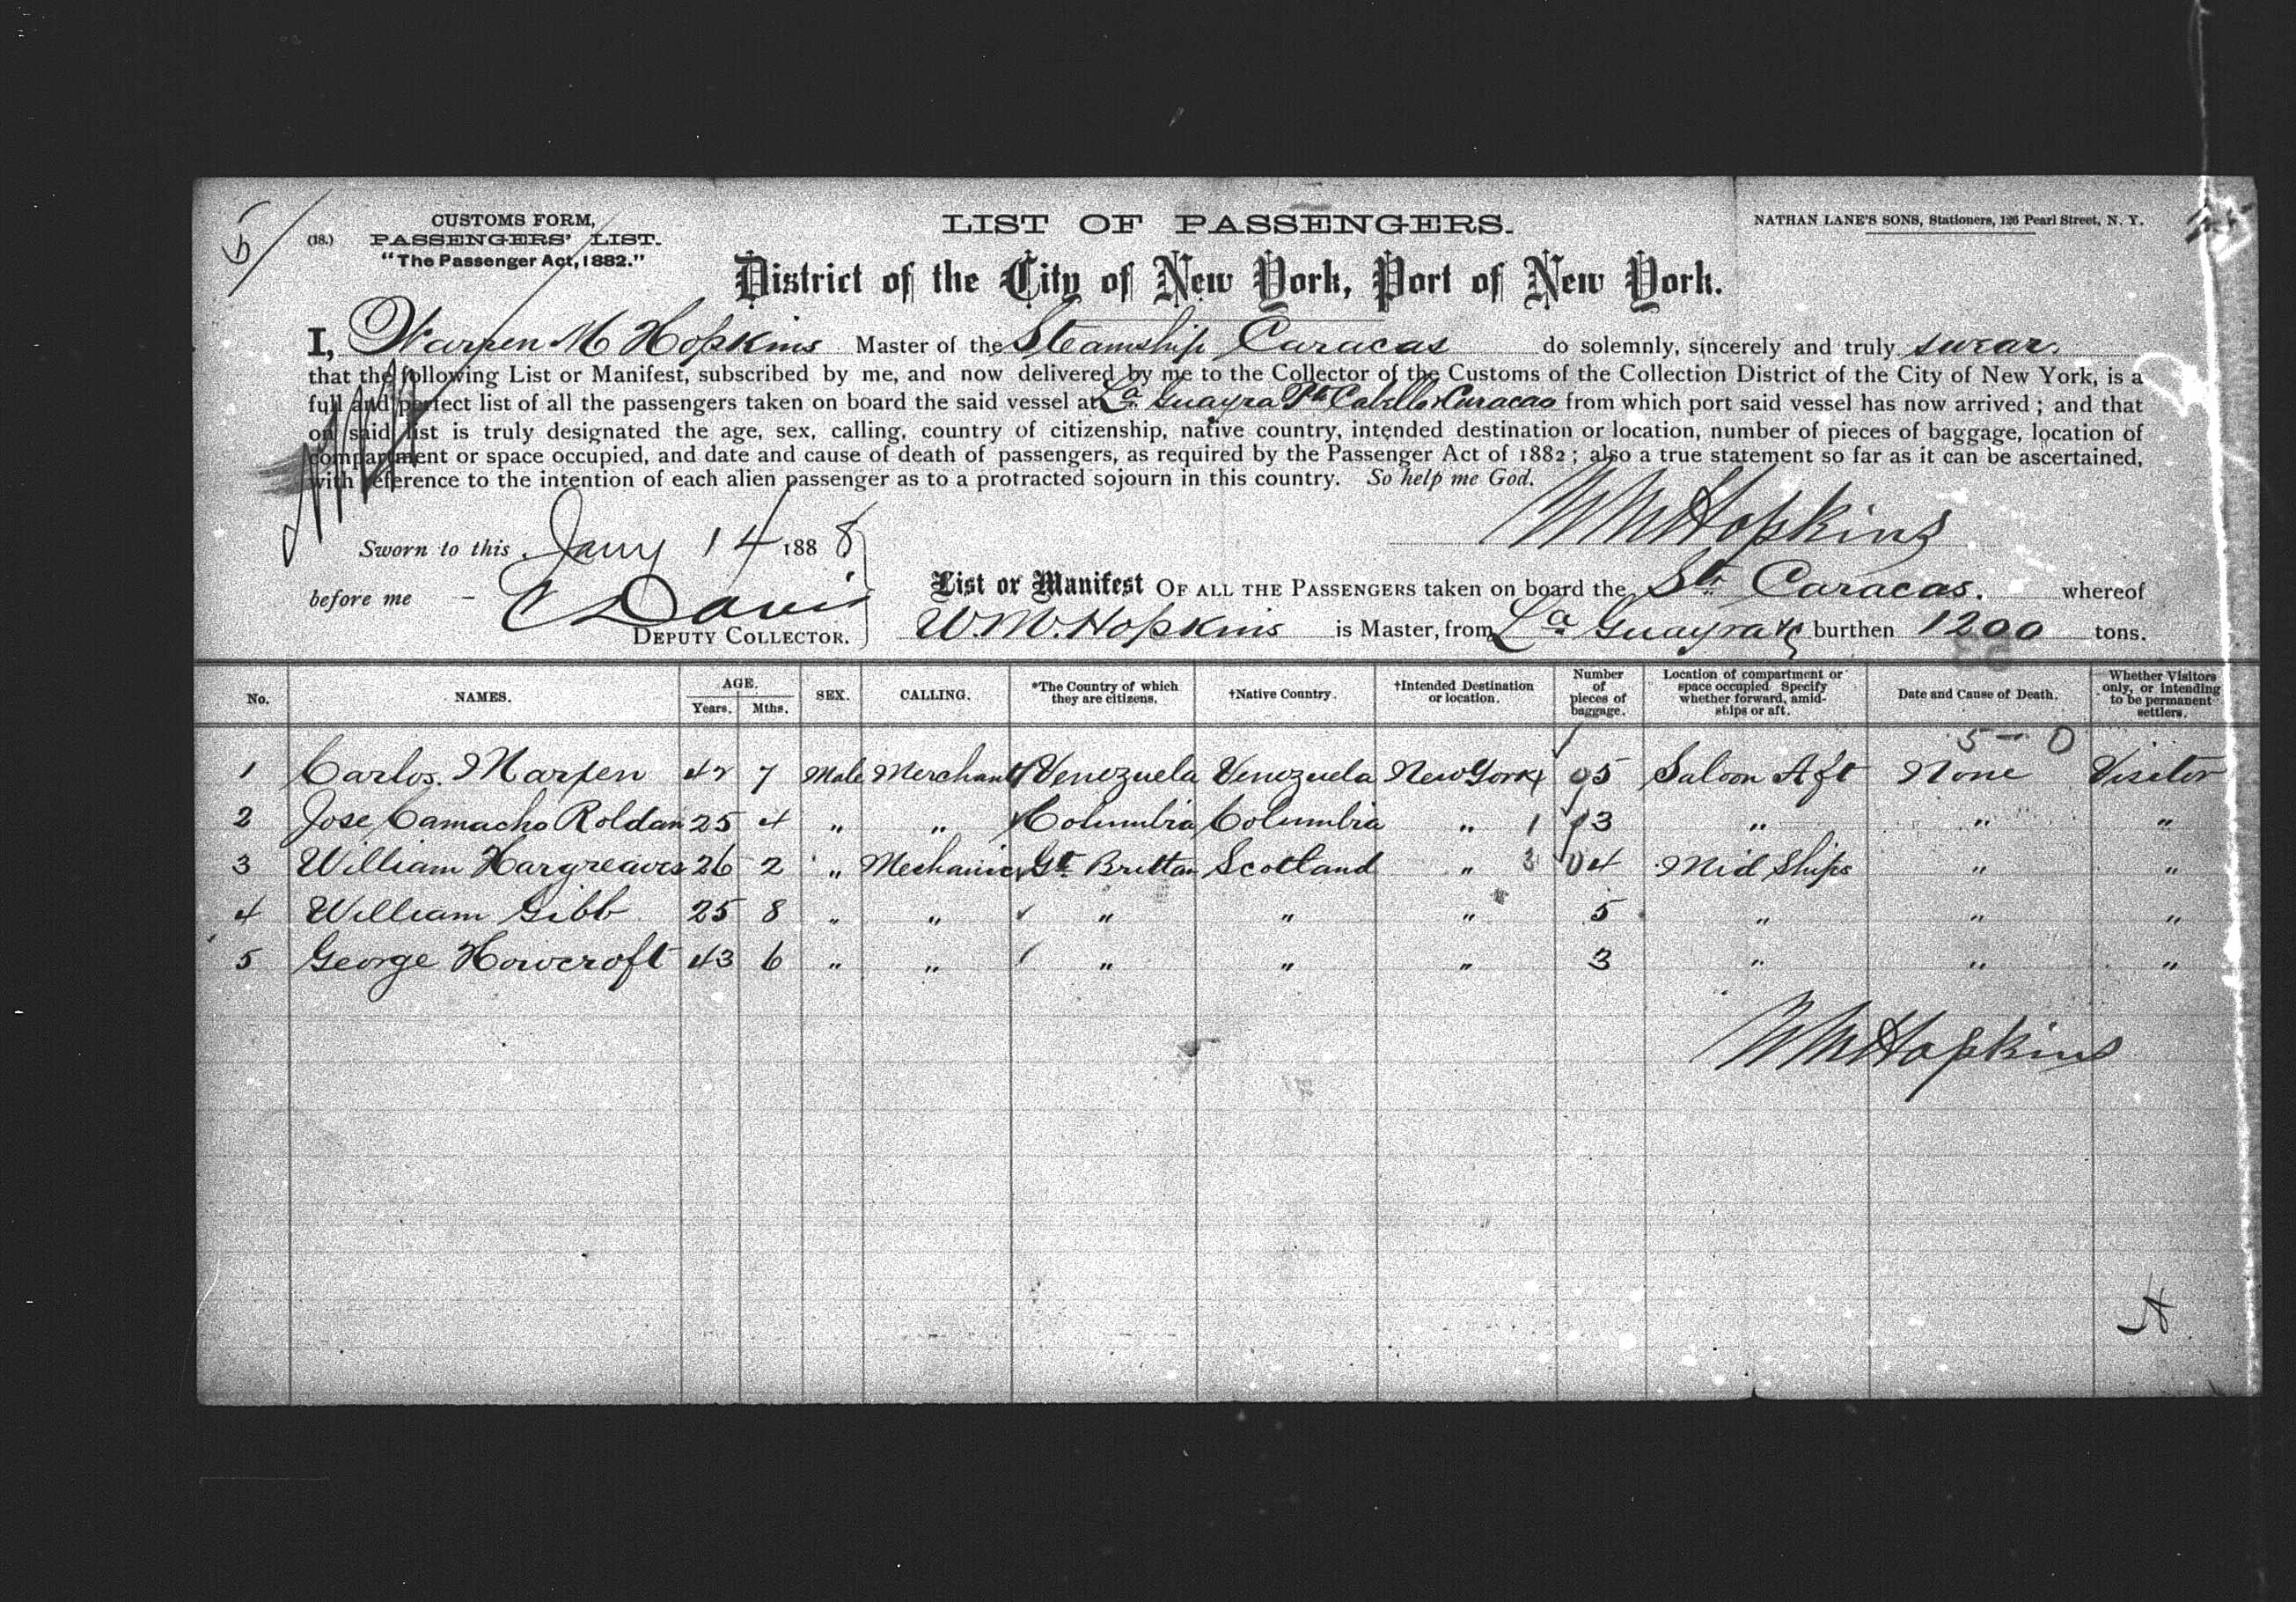 5
(18.)
CUSTOMS FORM,
PASSENGERS' LIST.
"The Passenger Act, 1882."
LIST OF PASSENGERS.
NATHAN LANE'S SONS, Stationers, 126 Pearl Street, N. Y.
District of the City of New York, Port of New York.
I, Warren M Hopkins Master of the Steamship Caracas do solemnly, sincerely and truly swear.
that the following List or Manifest, subscribed by me, and now delivered by me to the Collector of the Customs of the Collection District of the City of New York, is a
full and perfect list of all the passengers taken on board the said vessel at La Guayra Pto Cabello & Curacao from which port said vessel has now arrived; and that
on said list is truly designated the age, sex, calling, country of citizenship, native country, intended destination or location, number of pieces of baggage, location of
compartment or space occupied, and date and cause of death of passengers, as required by the Passenger Act of 1882; also a true statement so far as it can be ascertained,
with reference to the intention of each alien passenger as to a protracted sojourn in this country. So help me God.
WMHopkins
Sworn to this Jany 14 1888
before me - C Davis
DEPUTY COLLECTOR.
List or Manifest OF ALL THE PASSENGERS taken on board the Str Caracas. whereof
W. M. Hopkins is Master, from La Guayra &c burthen 1200 tons.
No. NAMES. AGE. Years. Mths. SEX. CALLING. *The Country of which they are citizens. †Native Country. †Intended Destination or location. Number of pieces of baggage. Location of compartment or space occupied Specify whether forward, amidships or aft. Date and Cause of Death. Whether Visitors only, or intending to be permanent settlers.
5 - 0
1 Carlos. Marxen 42 7 Male Merchant Venezuela Venezuela New York 5 Saloon Aft None Visitor
2 Jose Camacho Roldan 25 4 " " Columbia Columbia " 3 " " "
3 William Hargreaves 26 2 " Mechanic Gt Brittan Scotland " 4 Mid Ships " "
4 William Gibb 25 8 " " " " " 5 " " "
5 George Howcroft 43 6 " " " " " 3 " " "
WMHopkins